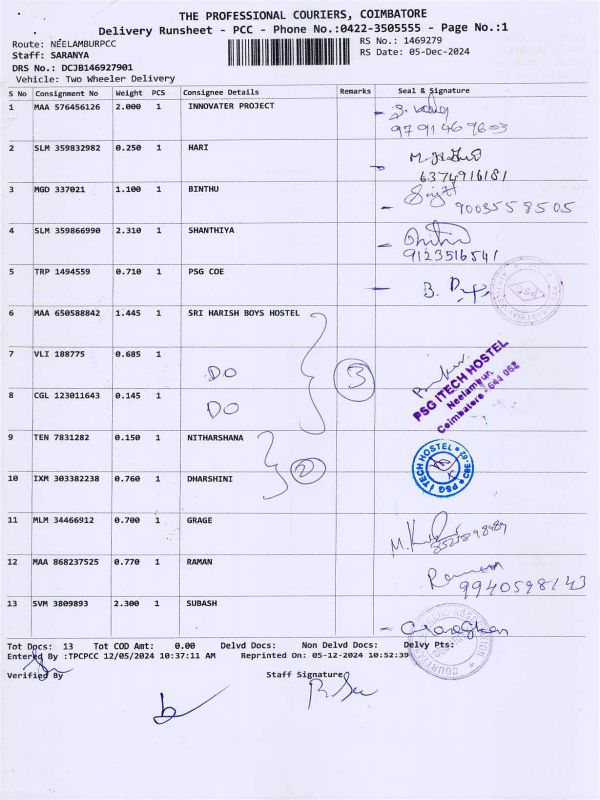 THE PROFESSIONAL COURIERS, COIMBATORE
Delivery Runsheet - PCC - Phone No.:0422-3505555 - Page No.:1
Route: NEELAMBURPCC
RS No.: 1469279
Staff: SARANYA
RS Date: 05-Dec-2024
DRS No.: DCJB146927901
Vehicle: Two Wheeler Delivery
S No Consignment No Weight PCS Consignee Details Remarks Seal & Signature
1 MAA 576456126 2.000 1 INNOVATER PROJECT
2 SLM 359832982 0.250 1 HARI
6374916181
3 MGD 337021 1.100 1 BINTHU
9003558505
4 SLM 359866990 2.310 1 SHANTHIYA
9123516541
5 TRP 1494559 0.710 1 PSG COE
6 MAA 650588842 1.445 1 SRI HARISH BOYS HOSTEL
7 VLI 188775 0.685 1 DO
3
PSG ITECH HOSTEL
Neelambur,
Coimbatore - 641 062
8 CGL 123011643 0.145 1 DO
9 TEN 7831282 0.150 1 NITHARSHANA
2
PSG ITECH HOSTEL CBE-62
10 IXM 303382238 0.760 1 DHARSHINI
11 MLM 34466912 0.700 1 GRAGE
12 MAA 868237525 0.770 1 RAMAN
9940598143
13 SVM 3809893 2.300 1 SUBASH
Tot Docs: 13 Tot COD Amt: 0.00 Delvd Docs: Non Delvd Docs: Delvy Pts:
Entered By :TPCPCC 12/05/2024 10:37:11 AM Reprinted On: 05-12-2024 10:52:39
Verified By
Staff Signature